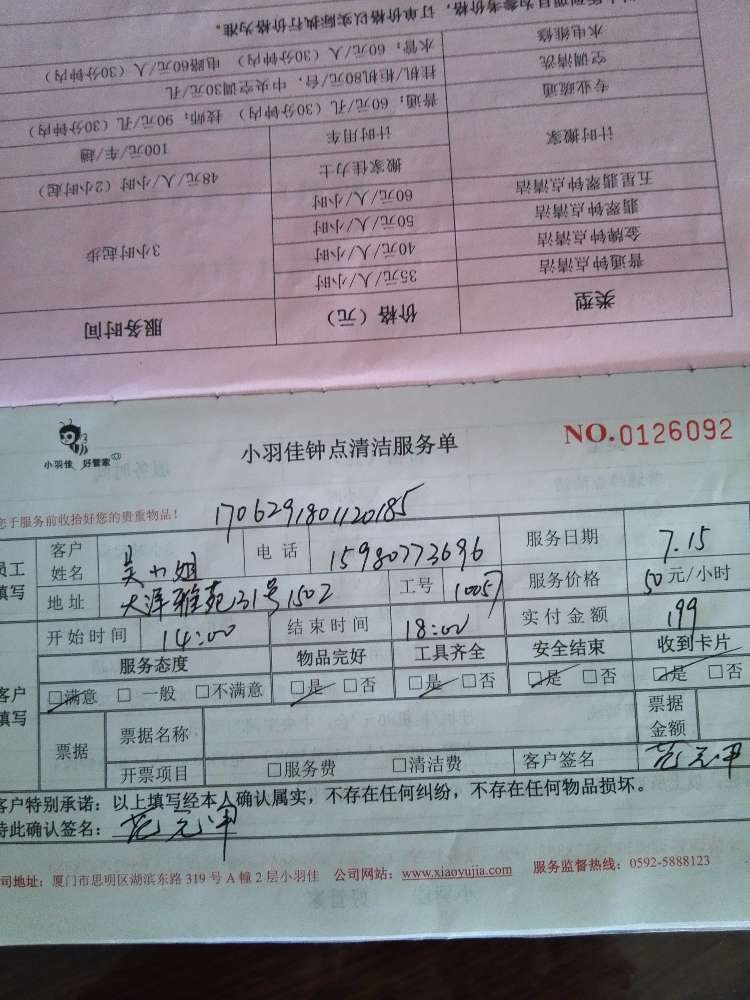 以上所列项目为参考价格，订单价格以实际执行价格为准。
水电维修 水管：60元/人（30分钟内） 电路60元/人（30分钟内）
空调清洗 挂机/柜机80元/台，中央空调30元/孔
专业疏通 普通：60元/孔（30分钟内） 技师：90元/孔（30分钟内）
计时搬家 计时用车 100元/车/趟
搬家佳力士 48元/人/小时（2小时起）
五星翡翠钟点清洁 60元/人/小时
翡翠钟点清洁 50元/人/小时
金牌钟点清洁 40元/人/小时
普通钟点清洁 35元/人/小时
3小时起步
类型 价格（元） 服务时间
小羽佳 好管家
小羽佳钟点清洁服务单
NO.0126092
您于服务前收拾好您的贵重物品！
1706291801120185
员工填写
客户姓名 吴小姐 电话 15980773696 服务日期 7.15
地址 大洋雅苑231号1502 工号 10057 服务价格 50元/小时
开始时间 14:00 结束时间 18:00 实付金额 199
客户填写
服务态度 物品完好 工具齐全 安全结束 收到卡片
□满意 □一般 □不满意 □是 □否 □是 □否 □是 □否 □是 □否
票据 票据名称 票据金额
开票项目 □服务费 □清洁费 客户签名
客户特别承诺：以上填写经本人确认属实，不存在任何纠纷，不存在任何物品损坏。
特此确认签名：
公司地址：厦门市思明区湖滨东路319号A幢2层小羽佳 公司网站：www.xiaoyujia.com 服务监督热线：0592-5888123